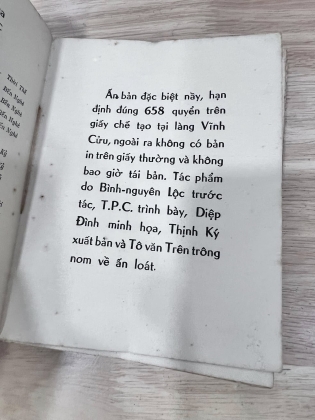 Thời Thế
Bến Nghé
Bến Nghé
Bến Nghé
Bến Nghé
Ấn bản đặc biệt nầy, hạn
định đúng 658 quyển trên
giấy chế tạo tại làng Vĩnh
Cửu, ngoài ra không có bản
in trên giấy thường và không
bao giờ tái bản. Tác phẩm
do Bình-nguyên Lộc trước
tác, T.P.C. trình bày, Diệp
Đình minh họa, Thịnh Ký
xuất bản và Tô văn Trên trông
nom về ấn loát.